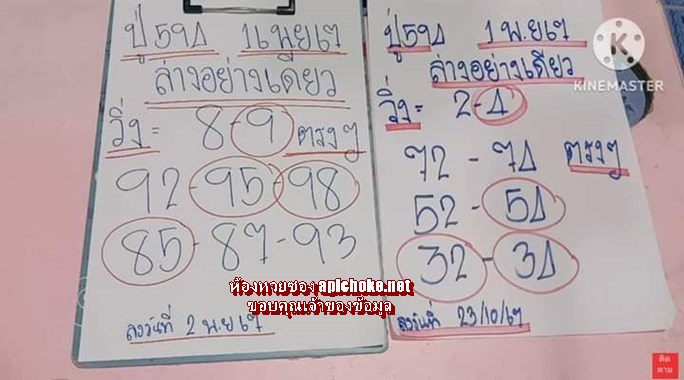 ปู่ 16 พ.ย 67
ล่างอย่างเดียว
วิ่ง = 8-9 ตรงๆ
92-95-98
85-87-93
ลงวันที่ 2 พ.ย 67
ปู่ 1 พ.ย 67
ล่างอย่างเดียว
วิ่ง = 2-4
72-74 ตรงๆ
52-54
32-34
ลงวันที่ 23/10/67
KINEMASTER
ห้องหวยซอง apichoke.net
ขอบคุณเจ้าของข้อมูล
ติด
ตาม